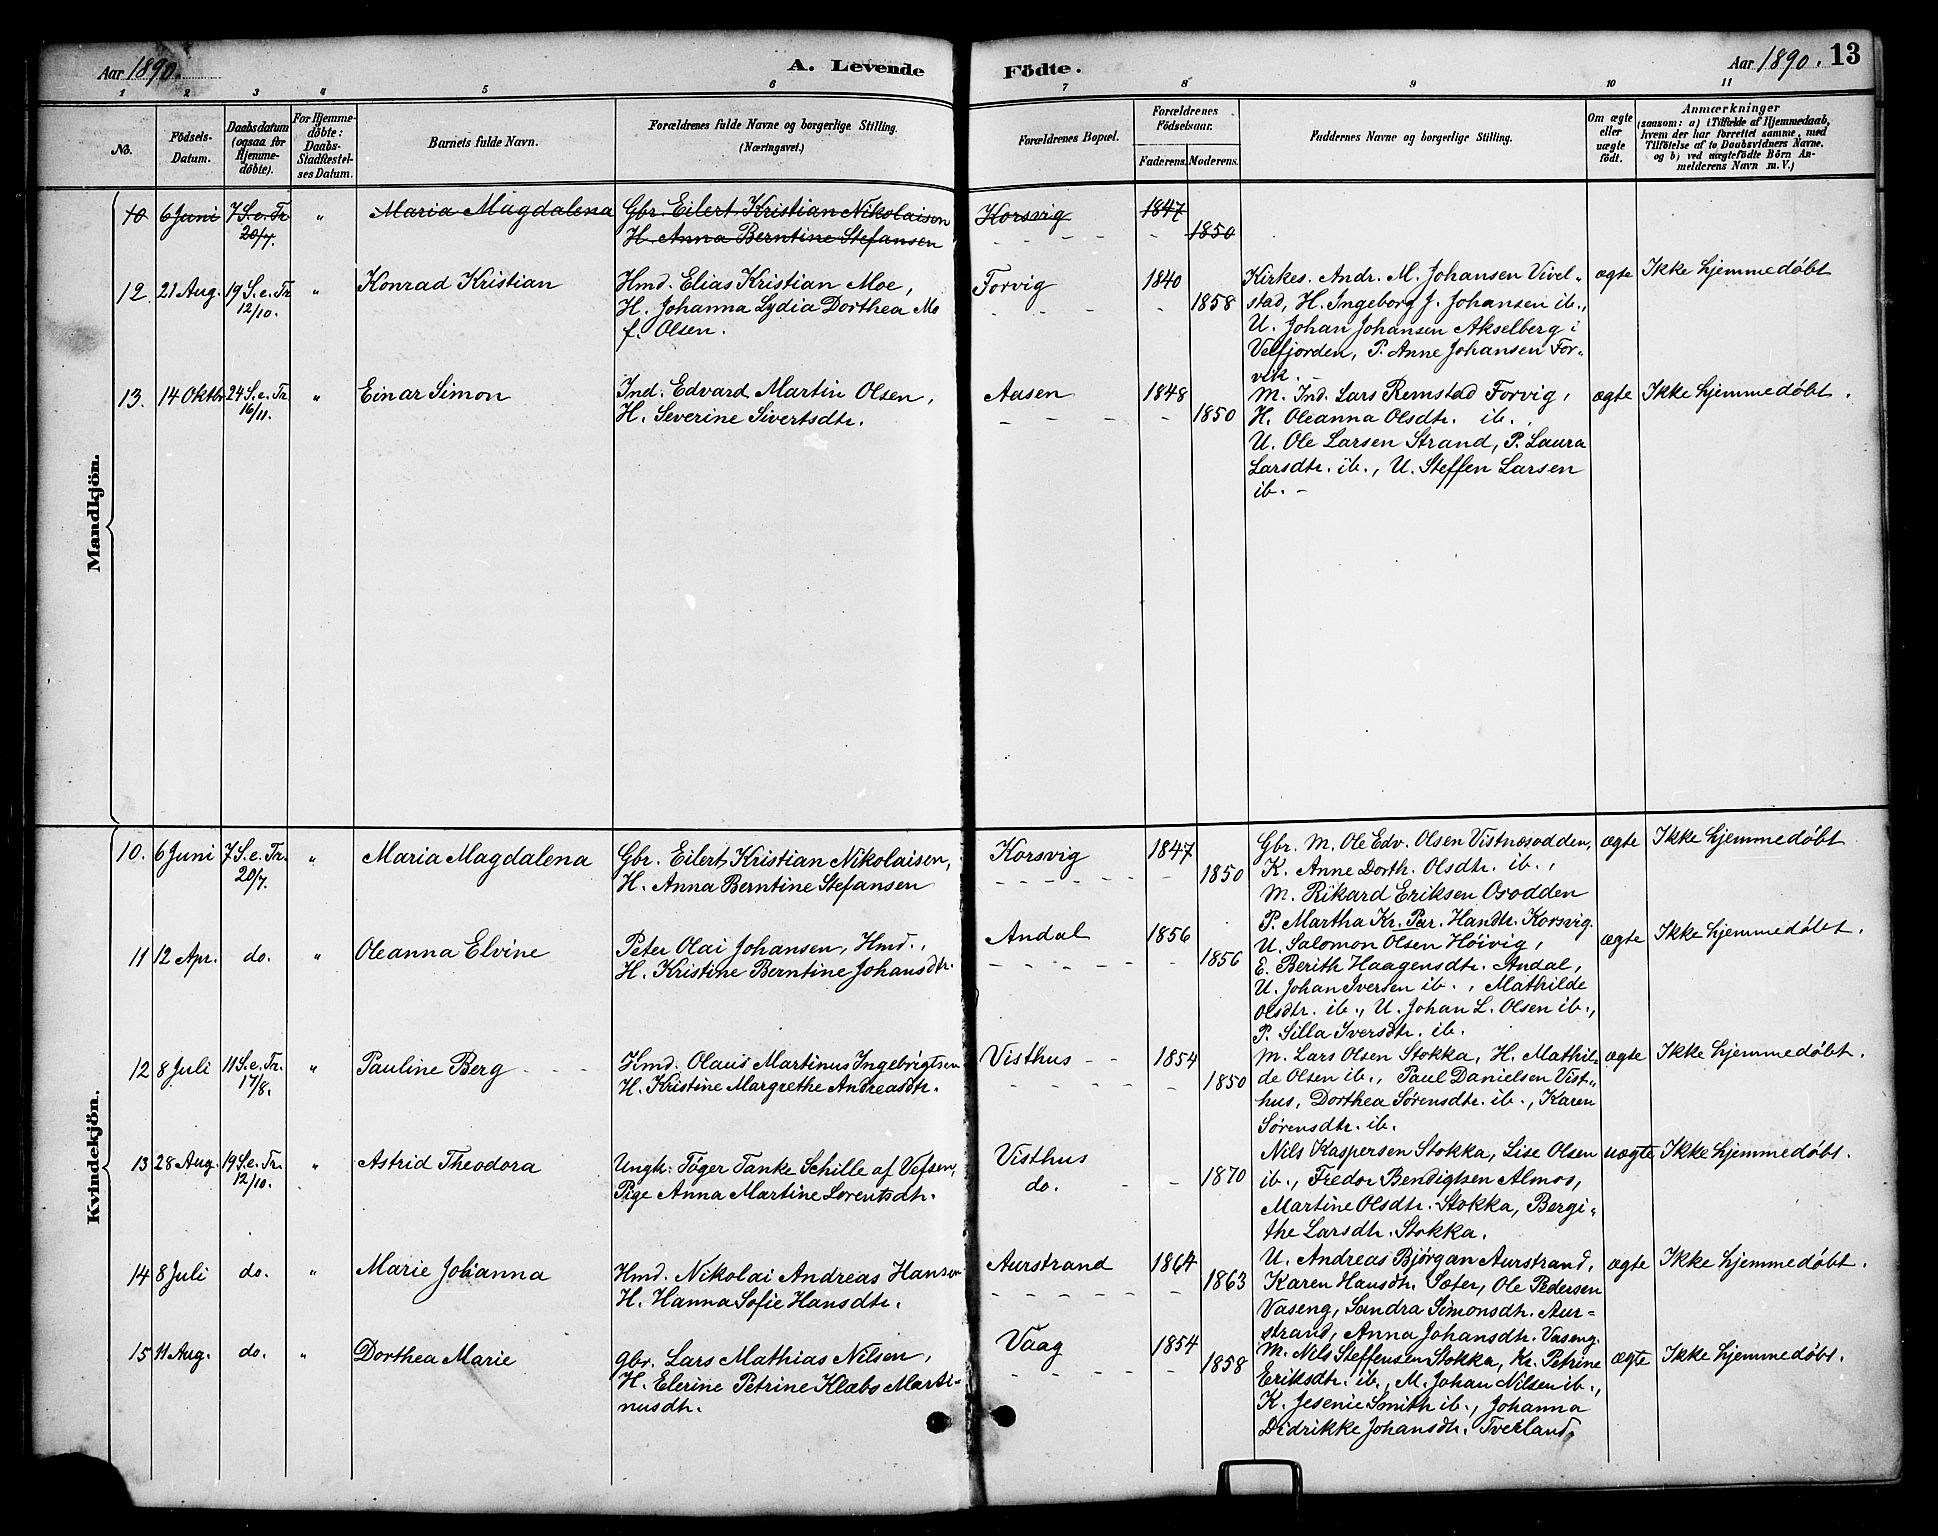 Aar 1890.
A. Levende
Födte.
Aar 1890.
13
1 2 3 4 5 6 7 8 9 10 11
No.
Födsels-
Datum.
Daabsdatum
(ogsaa for
Hjemme-
döbte).
For Hjemme-
döbte:
Daabs-
Stadfæstel-
ses Datum.
Barnets fulde Navn.
Forældrenes fulde Navne og borgerlige Stilling.
(Næringsvei.)
Forældrenes Bopæl.
Forældrenes
Födselsaar.
Faderens. Moderens.
Faddernes Navne og borgerlige Stilling.
Om ægte
eller
uægte
födt.
Anmærkninger
(saasom: a) i Tilfælde af Hjemmedaab,
hvem der har forrettet samme, med
Tilföielse af to Daabsvidners Navne,
og b) ved uægtefödte Börn An-
melderens Navn m. V.)
Mandkjön.
10 6 Juni 7 S. e. Tr. " Maria Magdalena Gbr. Eilert Kristian Nikolaisen Korsvig 1847
20/7 H. Anna Berntine Stefansen - - - - - 1850
12. 21 Aug. 19 S. e. Tr. " Konrad Kristian Hmd. Elias Kristian Moe, Forvig 1840 Kirkes. Andr. M. Johansen Vivel- ægte Ikke hjemmedøbt
12/10. H. Johanna Lydia Dorthea Mo - - - - 1858 stad, H. Ingeborg J. Johansen ib.,
f. Olsen. U. Johan Johansen Akselberg i
Velfjorden, P. Anne Johansen For-
vik.
13. 14 Oktbr 24 S. e. Tr. " Einar Simon Ind. Edvard Martin Olsen, Aasen 1848 M. Ind. Lars Remstad Forvig, ægte Ikke hjemmedøbt.
16/11. H. Severine Sivertsdtr. - - - - 1850 H. Oleanna Olsdtr. ib.,
U. Ole Larsen Strand, P. Laura
Larsdtr. ib., U. Steffen Larsen
ib. -
Kvindekjön.
10. 6 Juni 7 S. e. Tr. " Maria Magdalena Gbr. Eilert Kristian Nikolaisen, Korsvig 1847 Gbr. M. Ole Edv. Olsen Vistnæsodden, ægte Ikke hjemmedøbt
20/7. H. Anna Berntine Stefansen - - - - - - 1850 K. Anne Dorth. Olsdtr. ib.,
M. Rikard Eriksen Osodden
P. Martha Kr. Per. Handtr. Korsvig.
11 12 Apr. do. " Oleanna Elvine Peter Olai Johansen, Hmd., Andal 1856 U. Salomon Olsen Höivig, ægte Ikke hjemmedøbt.
H. Kristine Berntine Johansdtr. - - - - - - 1856 E. Berith Haagensdtr. Andal,
U. Johan Iversen ib., Mathilde
Olsdtr. ib., U. Johan L. Olsen ib.,
P. Silla Iversdtr. ib.
12 8 Juli 11 S. e. Tr. " Pauline Berg - - - Hmd. Olaus Martinus Ingebrigtsen Visthus - - 1854 M. Lars Olsen Stokka, H. Mathil- ægte Ikke hjemmedøbt.
17/8. H. Kristine Margrethe Andreasdtr. - - - - - - 1850 de Olsen ib., Paul Danielsen Vist-
hus, Dorthea Sørensdtr. ib., Karen
Sørensdtr. ib.
13 28 Aug. 19 S. e. Tr. " Astrid Theodora Ungk: Töger Tanke Schille af Vefsen, Visthus Nils Kaspersen Stokka, Lise Olsen uægte Ikke hjemmedøbt.
12/10. Pige Anna Martine Lorentsdtr. do. - - 1870 ib., Fredor Bendigtsen Almos,
Martine Olsdtr. Stokka, Bergi-
the Larsdtr. Stokka.
14 8 Juli do. " Marie Johanna Hmd. Nikolai Andreas Hansen Aurstrand 1864 U. Andreas Bjørgan Aurstrand, ægte Ikke hjemmedøbt.
H. Hanna Sofie Hansdtr. - - - - - - 1863 Karen Hansdtr. Sæter, Ole Pedersen
Vaseng, Sandra Simonsdtr. Aur-
strand, Anna Johansdtr. Vaseng.
15 11 Aug. do. " Dorthea Marie Gbr. Lars Mathias Nilsen, Vaag 1854 M. Nils Steffensen Stokka, Kr. Petrine ægte Ikke hjemmedøbt.
H. Elerine Petrine Klæbo Marti- - - - - - 1858 Eriksdtr. ib., M. Johan Nilsen ib.,
nusdtr. K. Jesenie Smith ib., Johanna
Didrikke Johansdtr. Tverland.